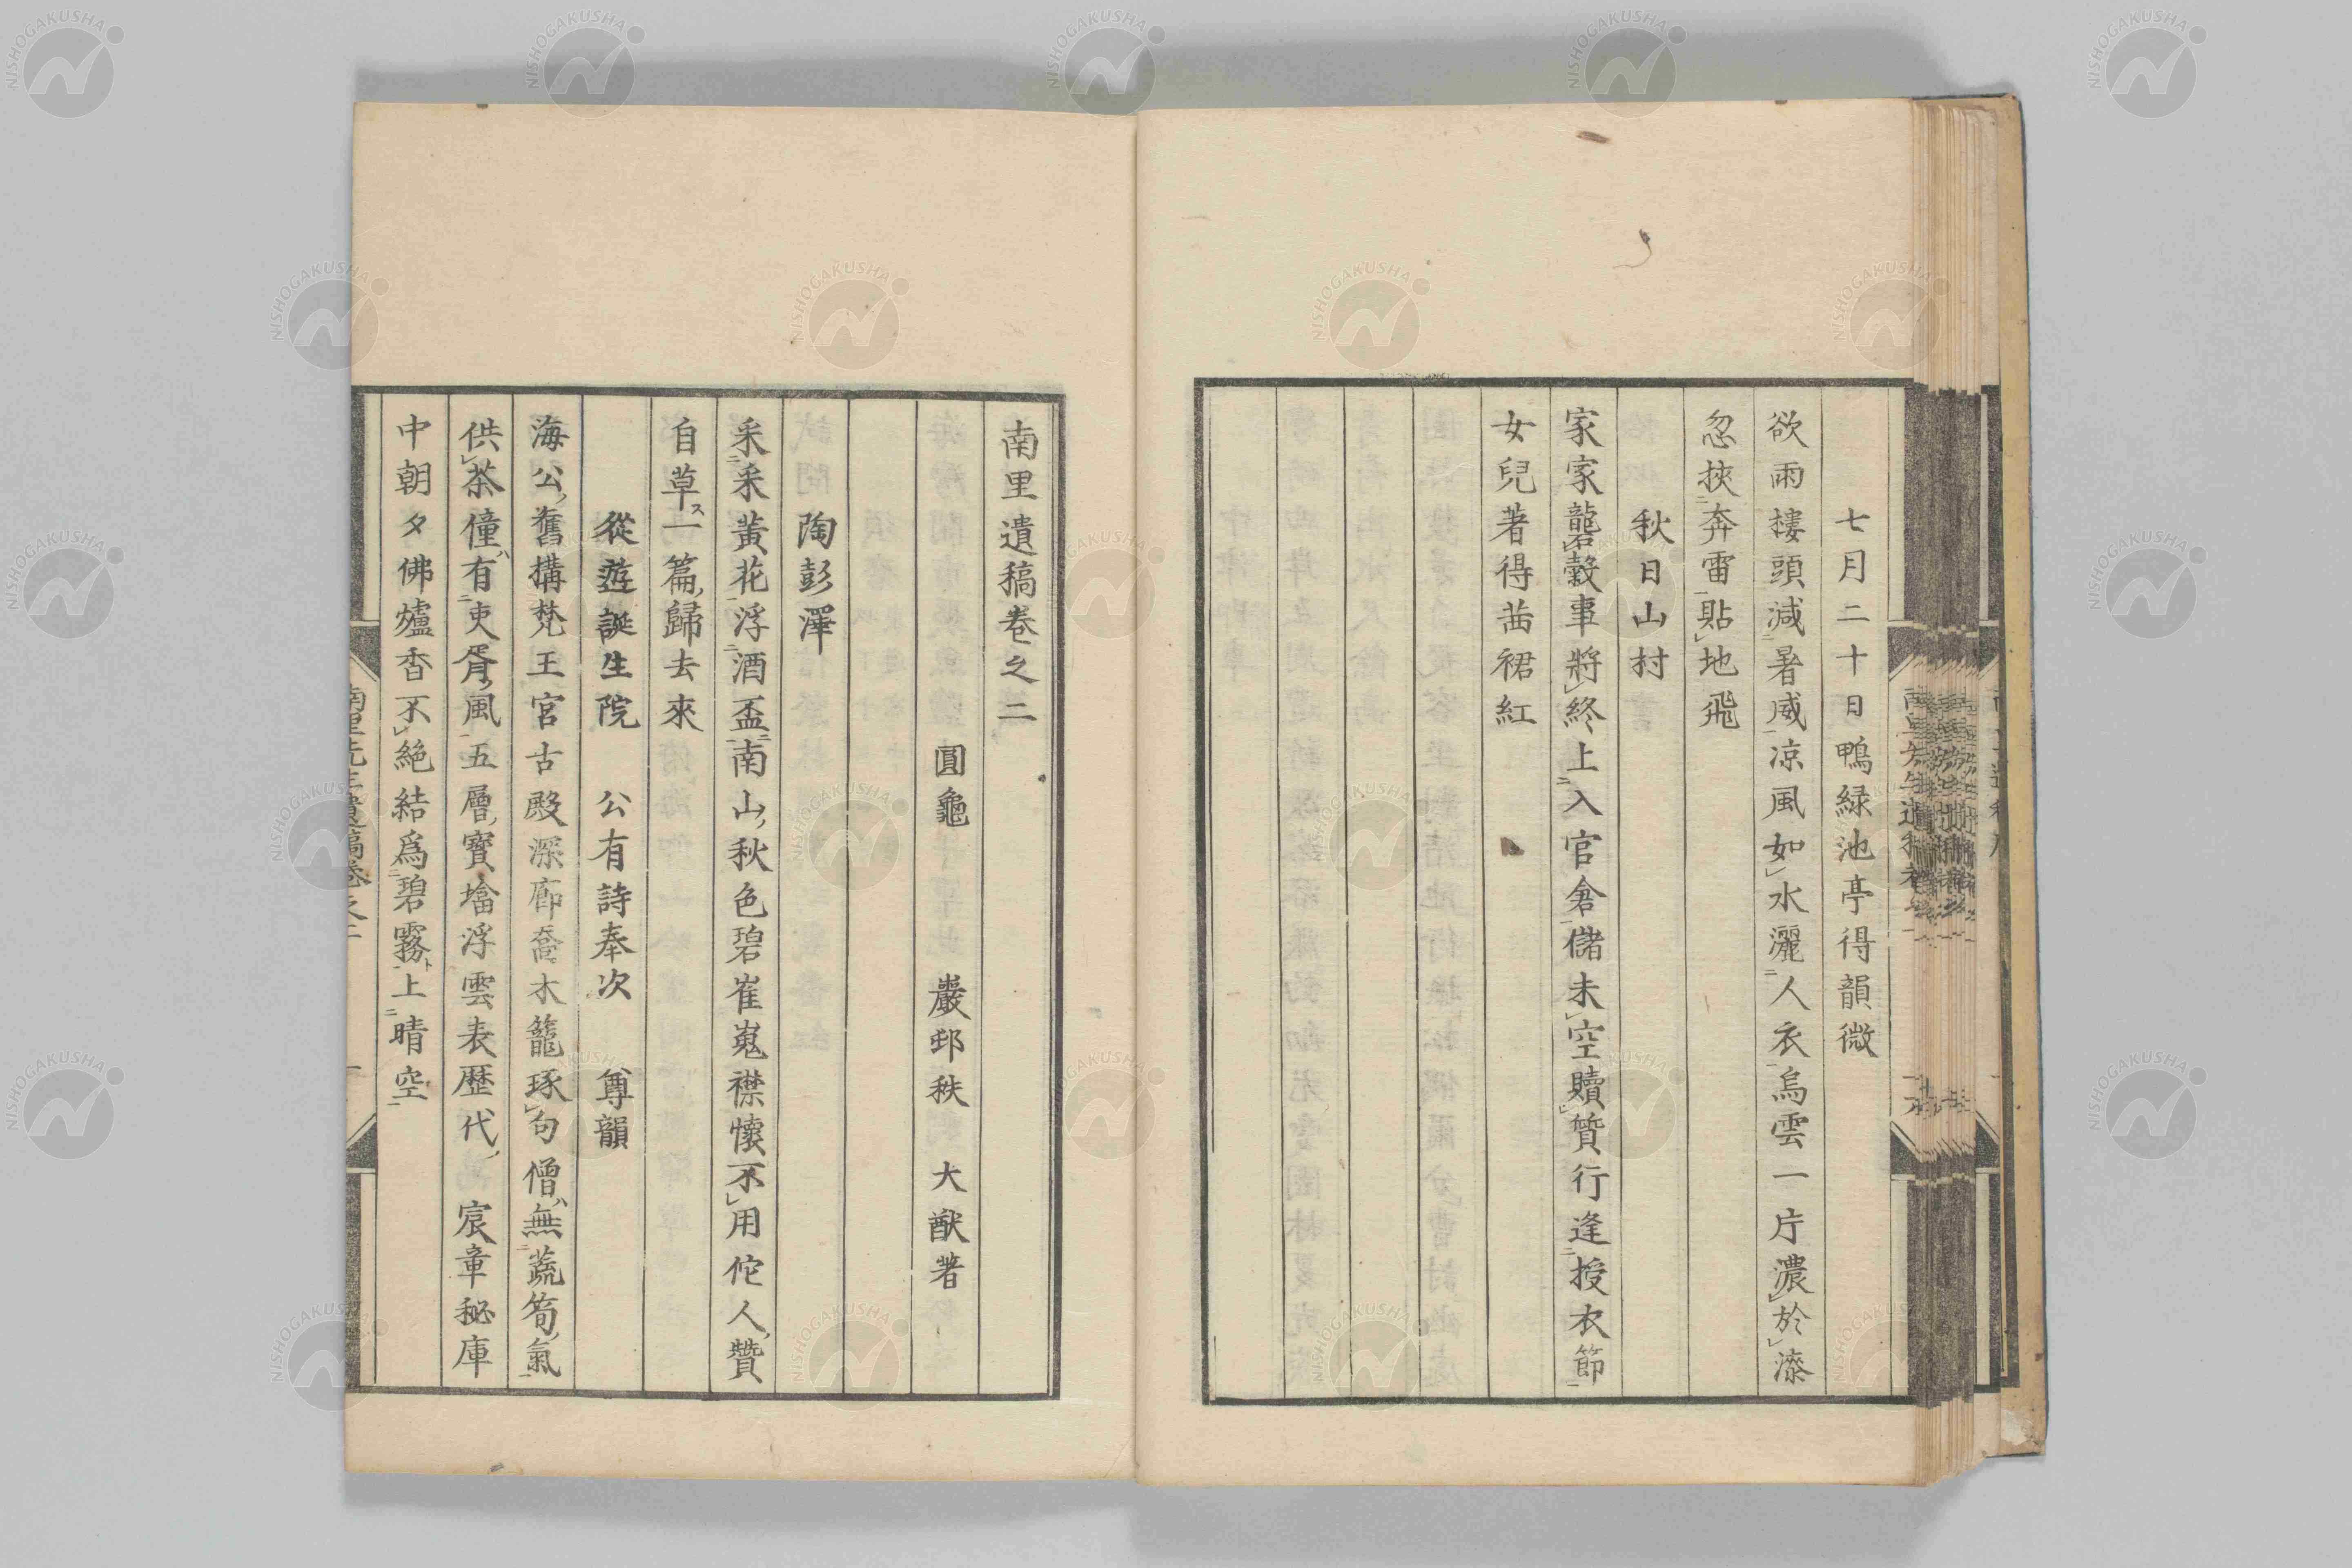 七月二十日鴨緑池亭得韻微
欲雨樓頭減暑威凉風如水灑人衣烏雲一片濃於漆
忽挾奔雷貼地飛
秋日山村
家家龍礱穀事將終上入官倉儲未空贖質行逢授衣節
女兒著得茜裙紅
南里遺稿卷之二
圓龜 巖邨秩 大猷著
陶彭澤
采采黃花浮酒盃南山秋色碧崔嵬襟懷不用佗人贊
自草一篇歸去來
從遊誕生院 公有詩奉次 尊韻
海公舊構梵王宮古殿深廊喬木籠琢句僧無蔬筍氣
供茶僮有吏胥風五層寶墖浮雲表歷代 宸章秘庫
中朝夕佛爐香不絕結爲碧霧上晴空
南里先生遺稿卷之二 一
NISHOGAKUSHA